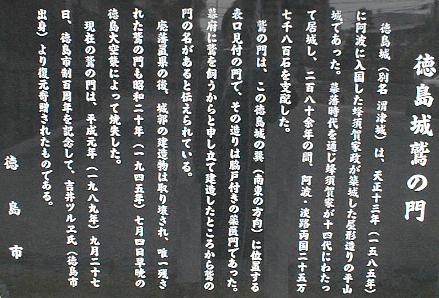 徳島城鷲の門
徳島城（別名 渭津城）は、天正十三年（一五八五年）
に阿波に入国した蜂須賀家政が築城した屋形造りの平山
城であった。幕藩時代を通じ蜂須賀家が十四代にわたっ
て居城し、二百八十余年の間、阿波・淡路両国二十五万
七千八百石を支配した。
鷲の門は、この徳島城の巽（南東の方向）に位置する
表口見付の門で、その造りは脇戸付きの薬医門であった。
幕府に鷲を飼うからと申し立て建造したところから鷲の
門の名があると伝えられている。
廃藩置県の後、城郭の建造物は取り壊され、唯一残さ
れた鷲の門も昭和二十年（一九四五年）七月四日早暁の
徳島大空襲によって焼失した。
現在の鷲の門は、平成元年（一九八九年）九月二十七
日、徳島市制百周年を記念して、吉井ツルヱ氏（徳島市
出身）より復元寄贈されたものである。
徳島市